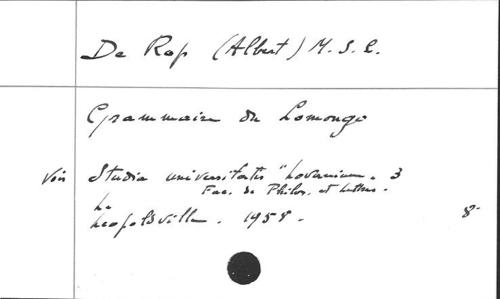 De Rop (Albert) M.S.C.
Grammaire du Lomongo
Voir Studia universitatis "Lovanium" 3
Fac. de Philos. et Lettres.
Leopoldville. 1958.
8°